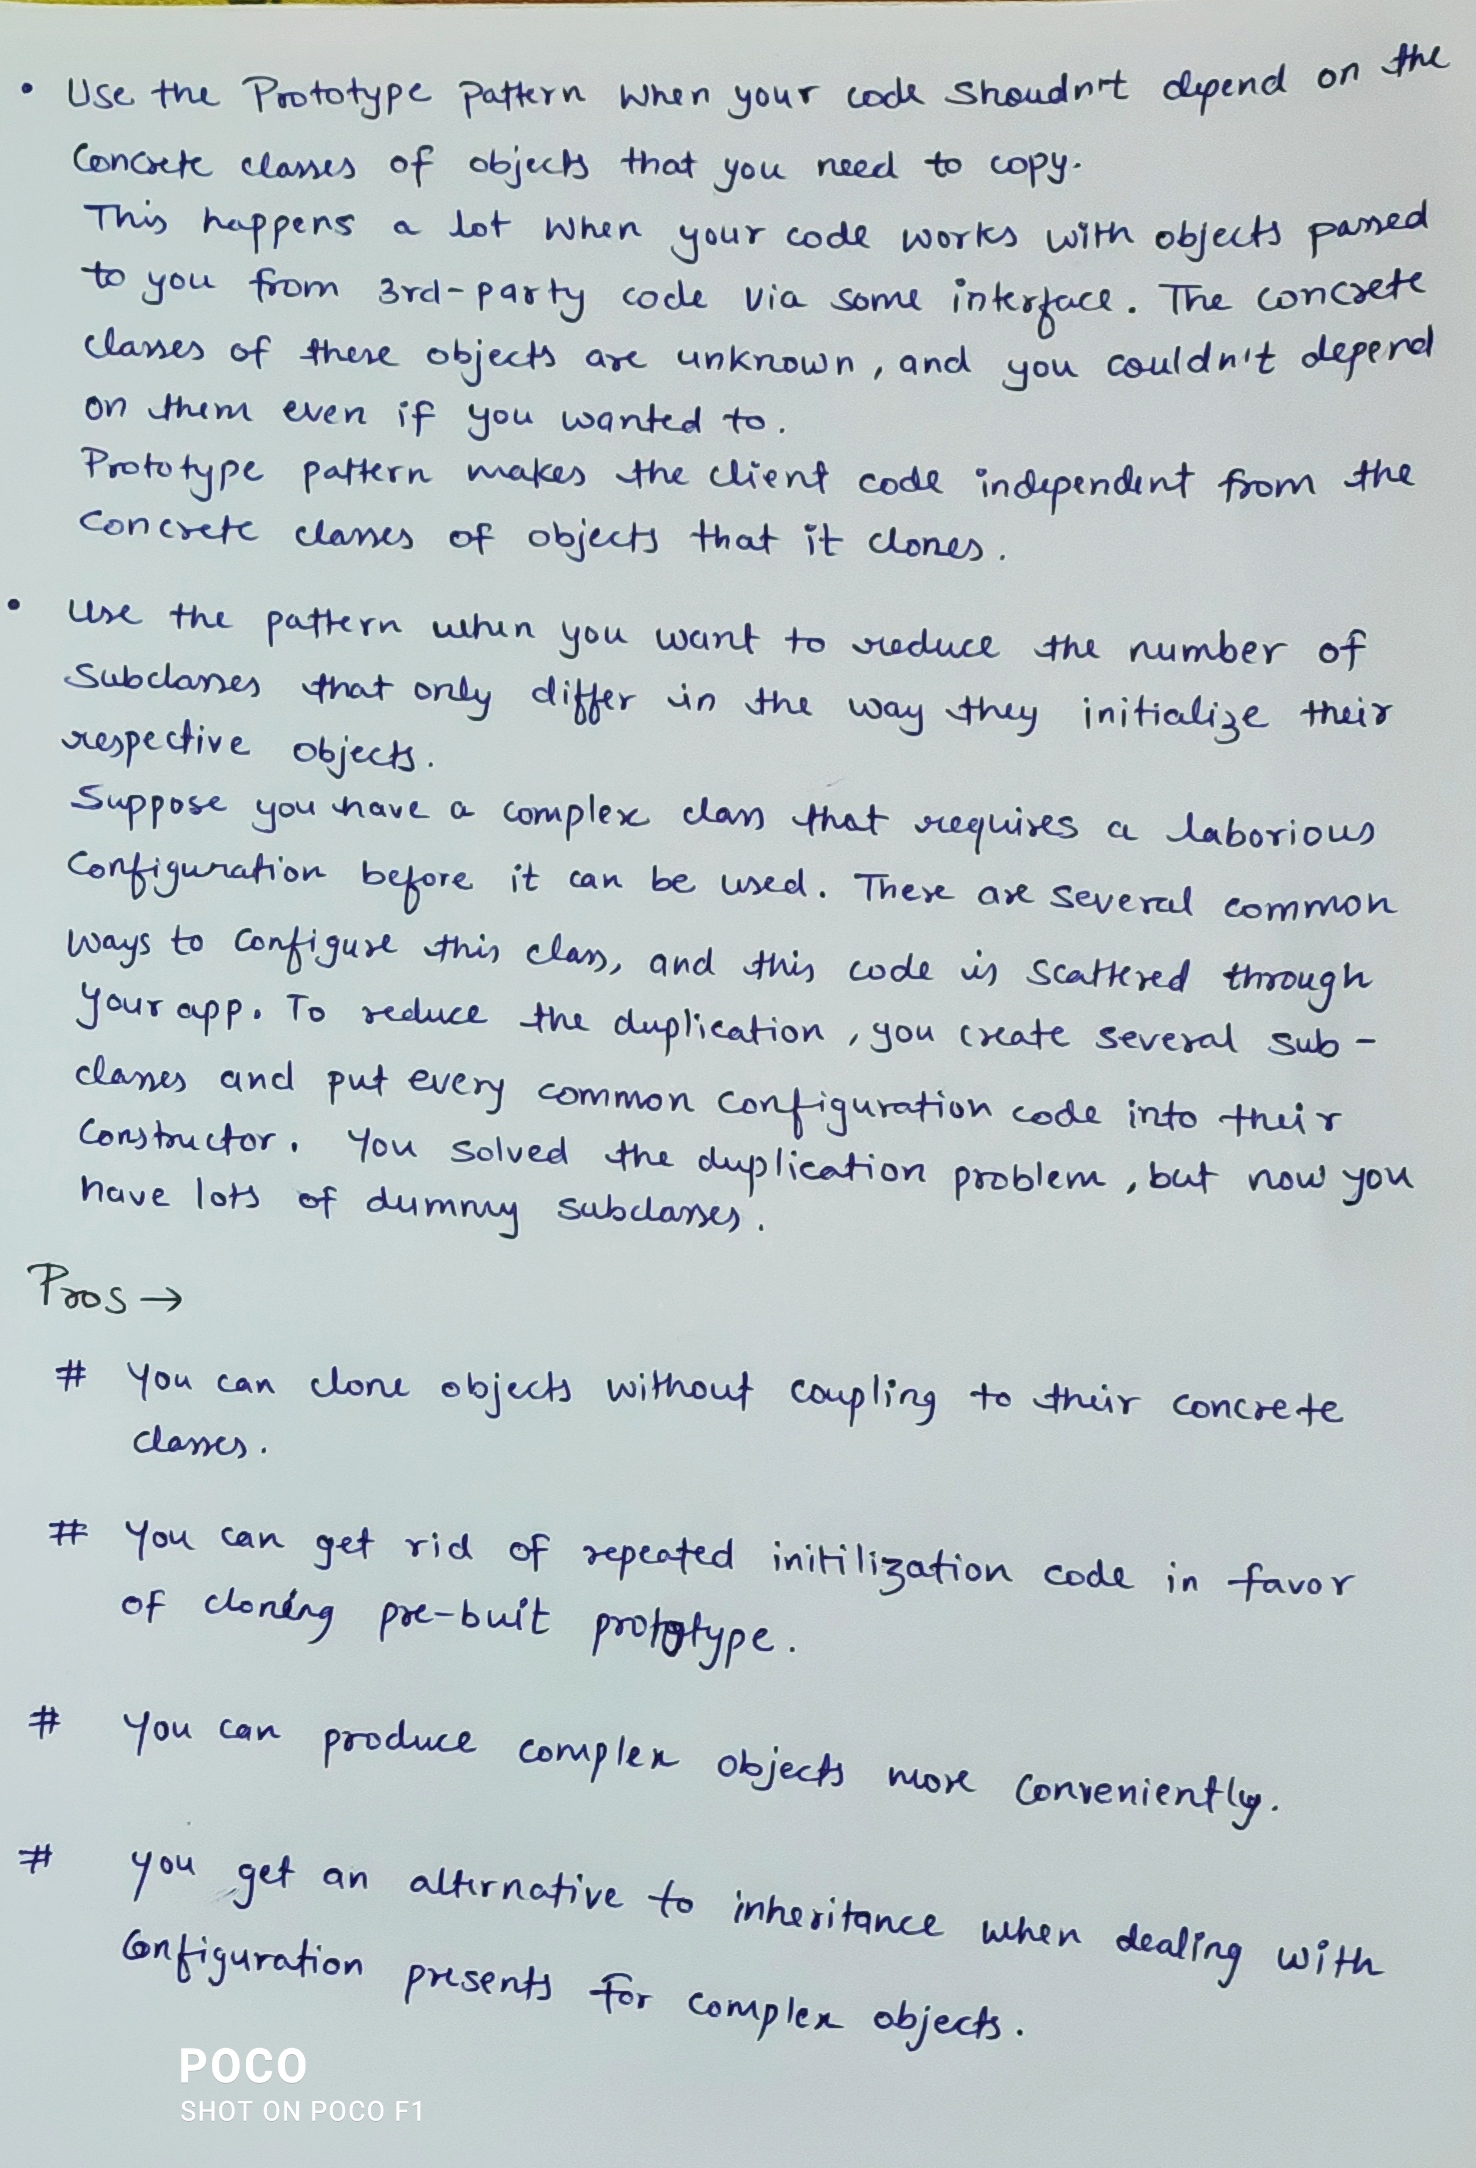 • Use the Prototype pattern when your code shoudn't depend on the
Concrete classes of objects that you need to copy.
This happens a lot when your code works with objects passed
to you from 3rd-party code via some interface. The concrete
classes of these objects are unknown, and you couldn't depend
on them even if you wanted to.
Prototype pattern makes the client code independent from the
Concrete classes of objects that it clones.
• Use the pattern when you want to reduce the number of
Subclasses that only differ in the way they initialize their
respective objects.
Suppose you have a complex class that requires a laborious
Configuration before it can be used. There are several common
ways to configure this class, and this code is scattered through
your app. To reduce the duplication, you create several sub-
classes and put every common configuration code into their
Constructor. You solved the duplication problem, but now you
have lots of dummy subclasses.
Pros →
# You can clone objects without coupling to their concrete
classes.
# You can get rid of repeated initilization code in favor
of cloning pre-buit prototype.
# You can produce complex objects more conveniently.
# you get an alternative to inheritance when dealing with
Configuration presents for complex objects.
POCO
SHOT ON POCO F1